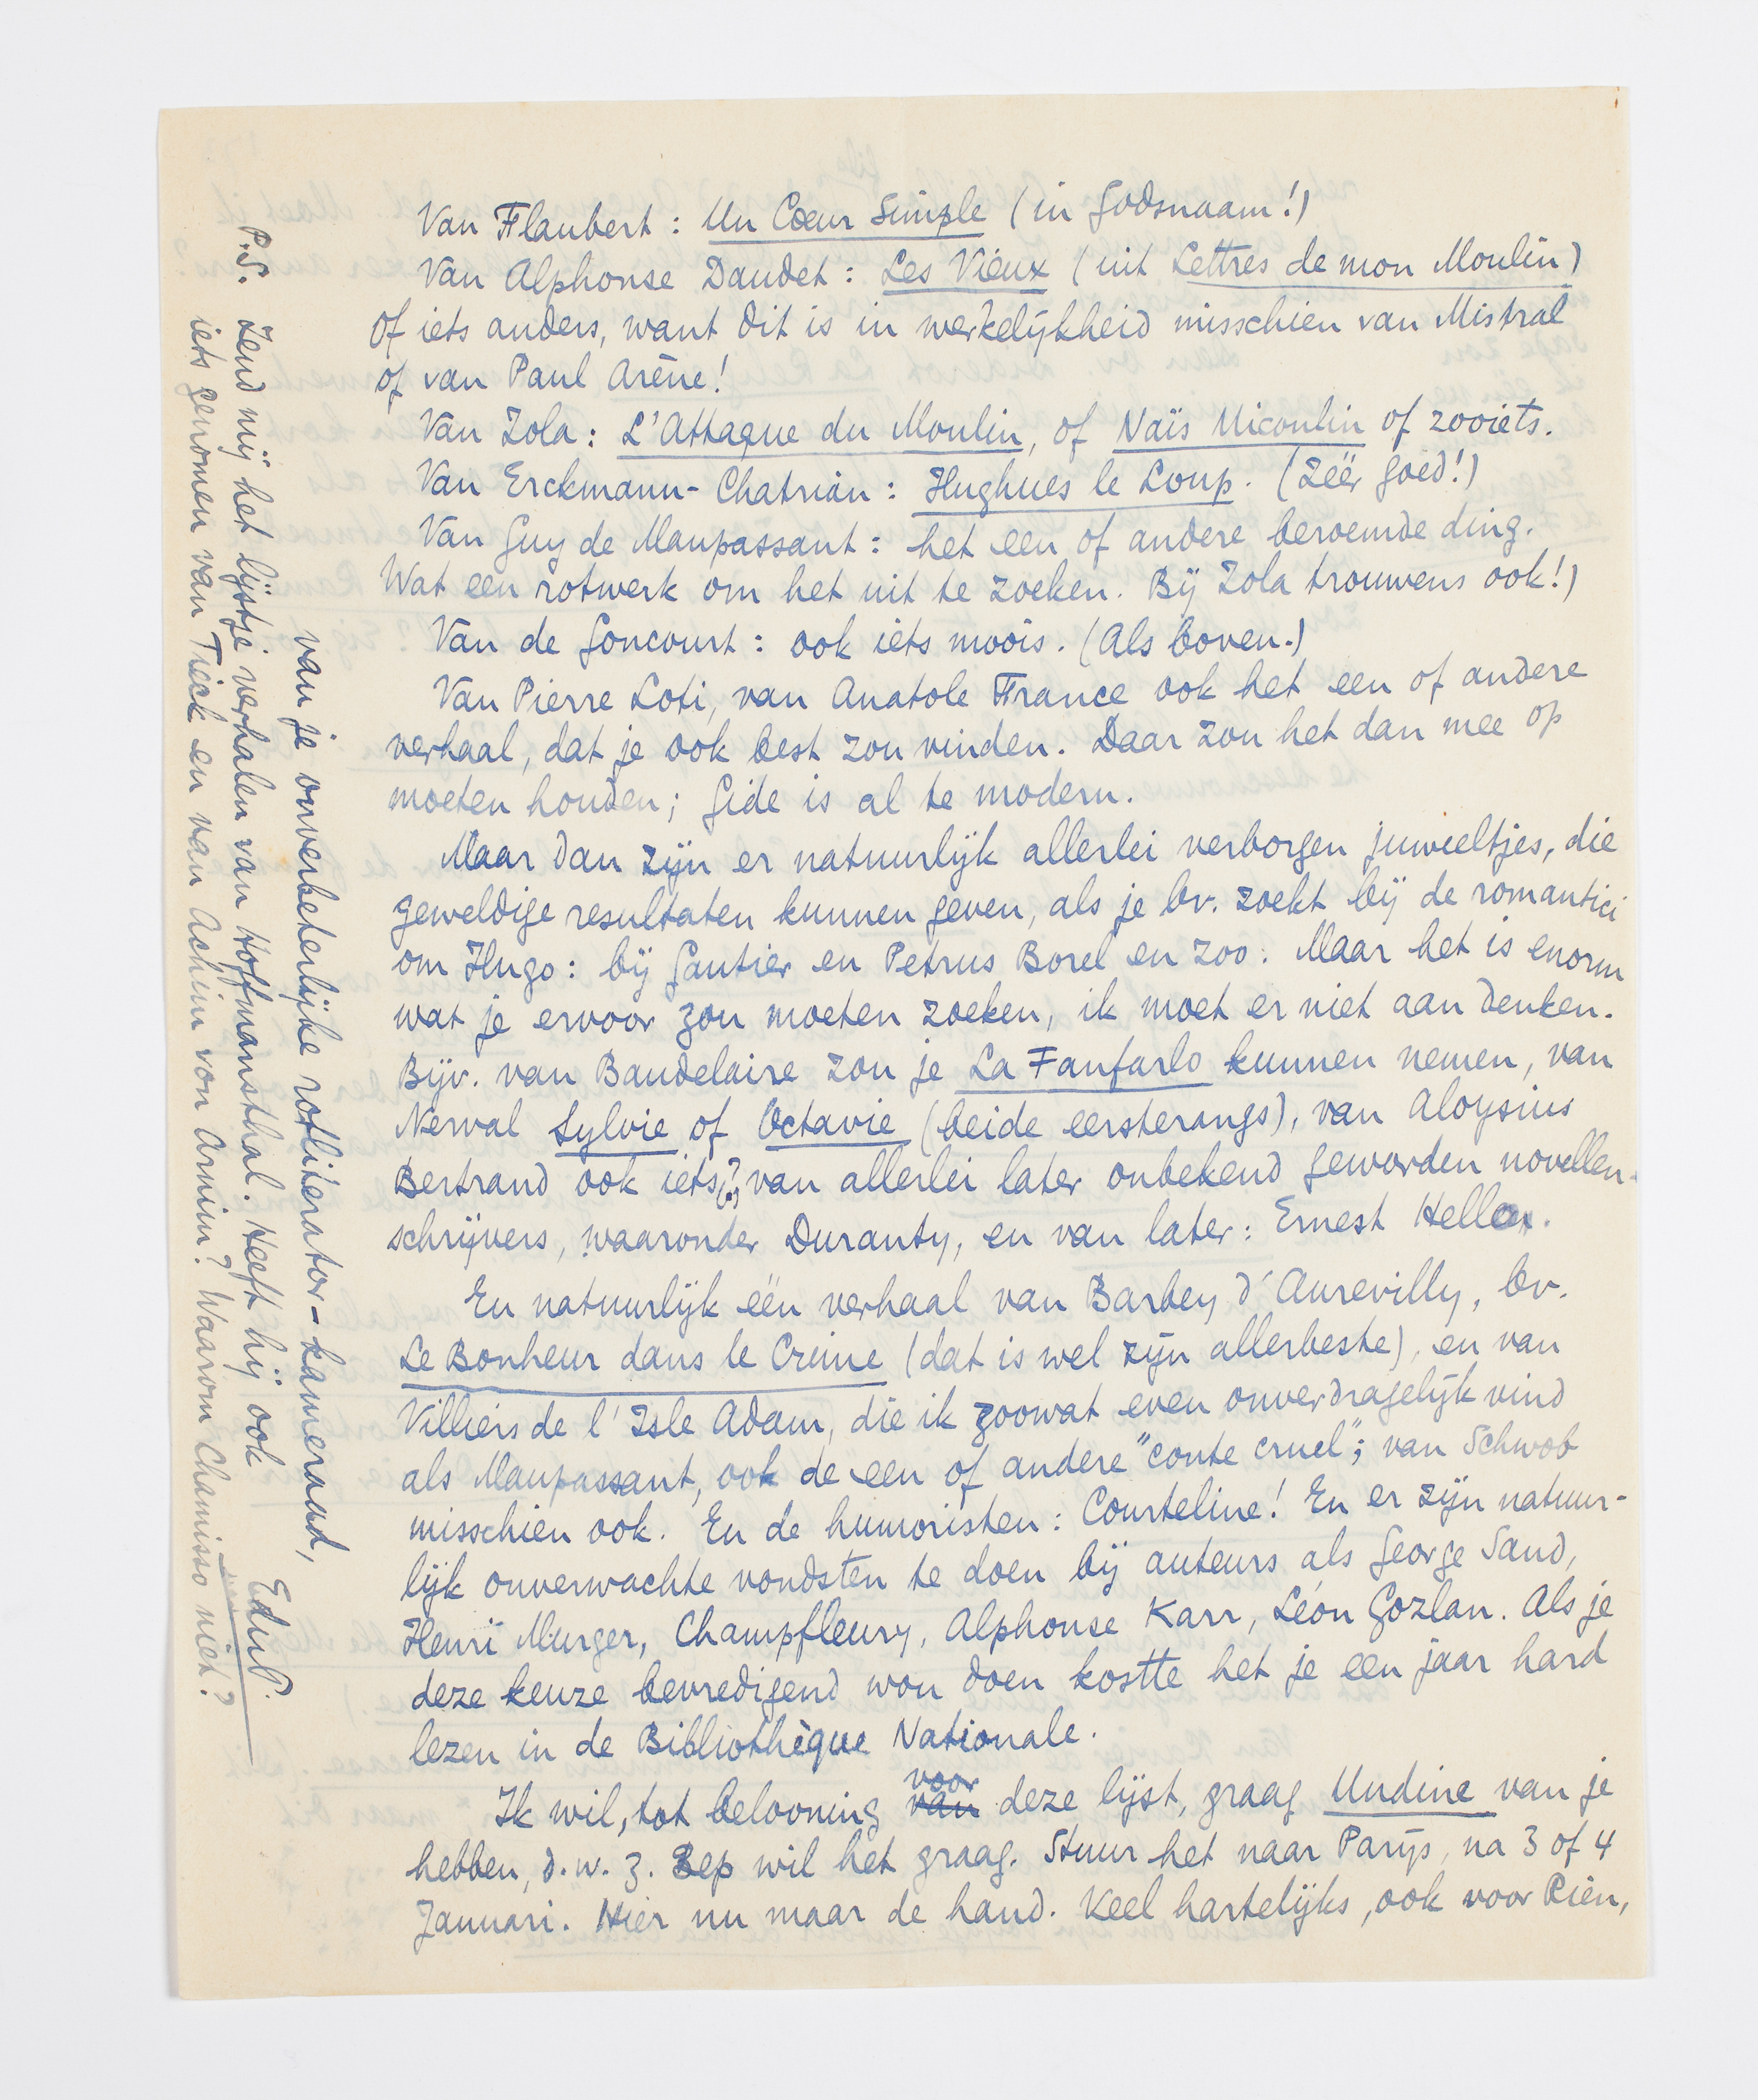 Van Flaubert: Un Cœur Simple (in Godsnaam!)
Van Alphonse Daudet: Les Vieux (uit Lettres de mon Moulin)
of iets anders, want dit is in werkelijkheid misschien van Mistral
of van Paul Arène!
Van Zola: L'Attaque du Moulin, of Naïs Micoulin of zooiets.
Van Erckmann-Chatrian: Hughues le Loup. (Zéér goed!)
Van Guy de Maupassant: het een of andere beroemde ding.
Wat een rotwerk om het uit te zoeken. Bij Zola trouwens ook!)
Van de Goncourt: ook iets moois. (Als boven.)
Van Pierre Loti, van Anatole France ook het een of andere
verhaal, dat je ook best zou vinden. Daar zou het dan mee op
moeten houden; Gide is al te modern.
Maar dan zijn er natuurlijk allerlei verborgen juweeltjes, die
geweldige resultaten kunnen geven, als je bv. zoekt bij de romantici
om Hugo: bij Gautier en Petrus Borel en zoo. Maar het is enorm
wat je ervoor zou moeten zoeken, ik moet er niet aan denken.
Bijv. van Baudelaire zou je La Fanfarlo kunnen nemen, van
Nerval Sylvie of Octavie (beide eersterangs), van Aloysius
Bertrand ook iets(?), van allerlei later onbekend geworden novellen-
schrijvers, waaronder Duranty, en van later: Ernest Hello.
En natuurlijk één verhaal van Barbey d'Aurevilly, bv.
Le Bonheur dans le Crime (dat is wel zijn allerbeste), en van
Villiers de l'Isle Adam, die ik zoowat even onverdragelijk vind
als Maupassant, ook de een of andere "conte cruel"; van Schwob
misschien ook. En de humoristen: Courteline! En er zijn natuur-
lijk onverwachte vondsten te doen bij auteurs als George Sand,
Henri Murger, Champfleury, Alphonse Karr, Léon Gozlan. Als je
deze keuze bevredigend wou doen kostte het je een jaar hard
lezen in de Bibliothèque Nationale.
Ik wil, tot belooning van voor deze lijst, graag Undine van je
hebben, d.w.z. Bep wil het graag. Stuur het naar Parijs, na 3 of 4
Januari. Hier nu maar de hand. Veel hartelijks, ook voor Rien,
van je onverbeterlijke rotliterator-kameraad,
EduP.
P.S. Zend mij het lijstje verhalen van Hoffmansthal. Heeft hij ook
iets genomen van Tieck en van Achim von Arnim? Waarom Chamisso niet?